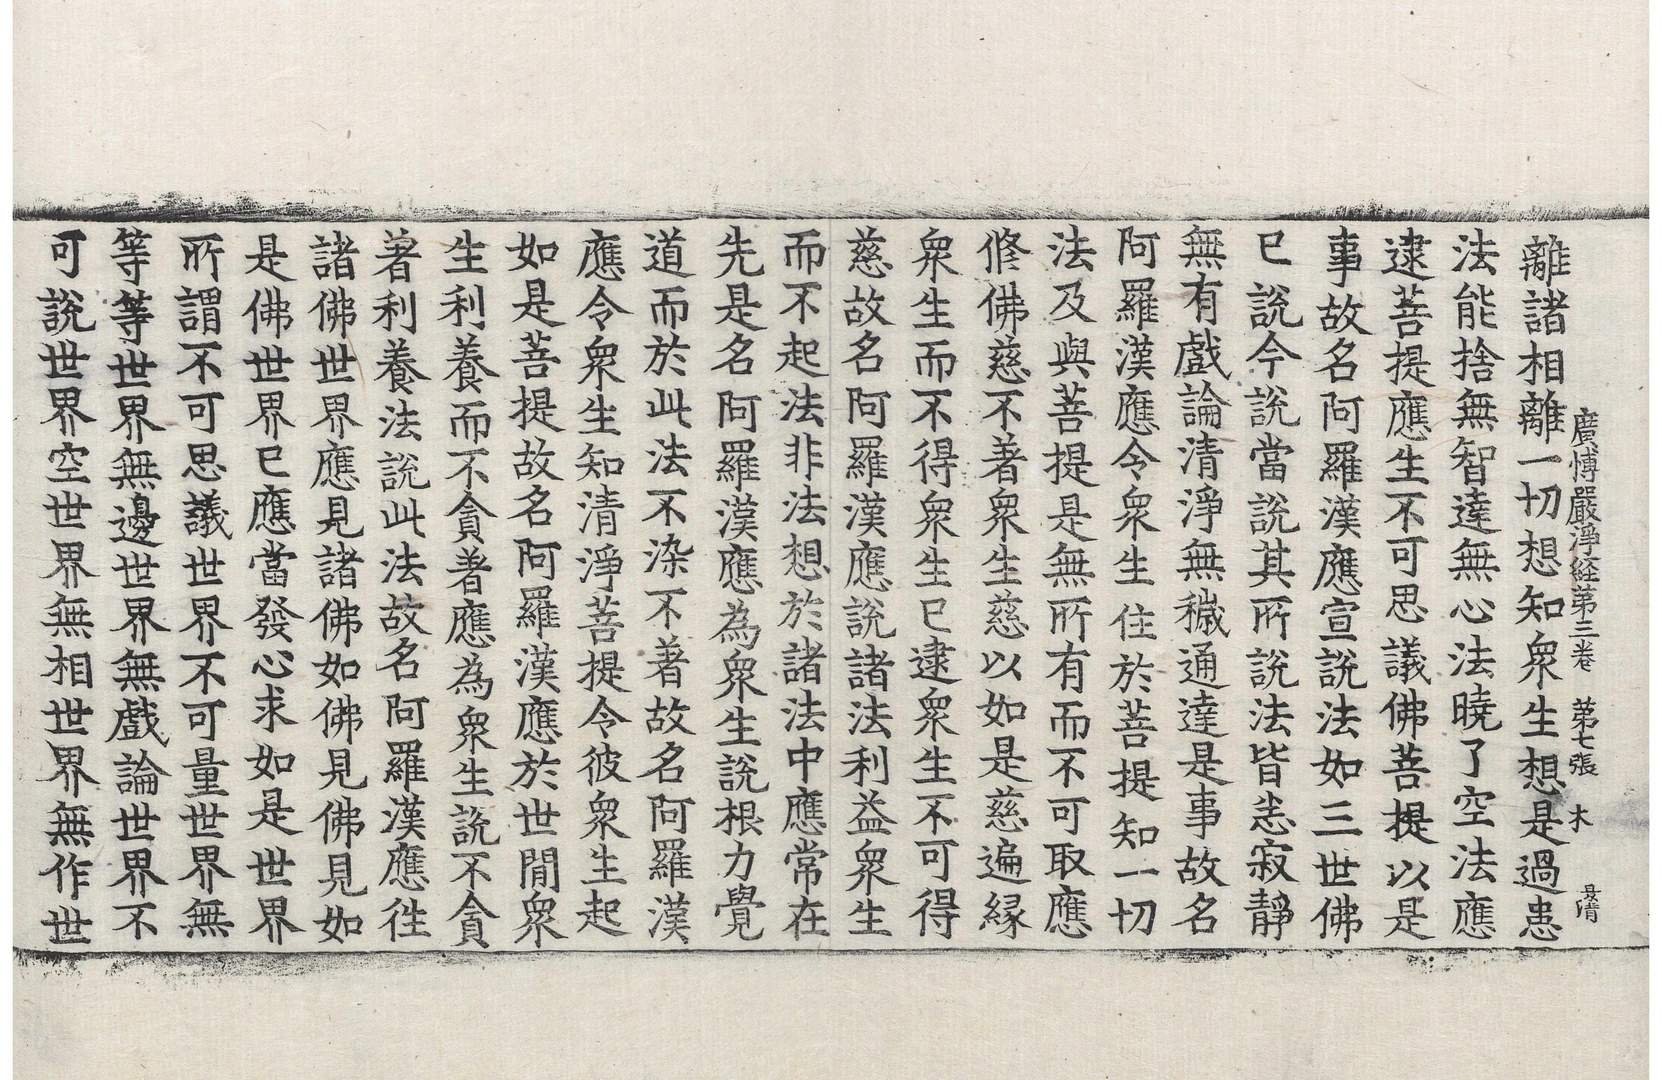 廣愽嚴淨経第三卷　第七張　木
離諸相離一切想知衆生想是過患
法能捨無智達無心法曉了空法應
逮菩提應生不可思議佛菩提以是
事故名阿羅漢應宣說法如三世佛
已說今說當說其所說法皆悉寂靜
無有戲論清淨無穢通達是事故名
阿羅漢應令衆生住於菩提知一切
法及與菩提是無所有而不可取應
修佛慈不著衆生慈以如是慈遍縁
衆生而不得衆生已逮衆生不可得
慈故名阿羅漢應說諸法利益衆生
而不起法非法想於諸法中應常在
先是名阿羅漢應為衆生說根力覺
道而於此法不染不著故名阿羅漢
應令衆生知清淨菩提令彼衆生起
如是菩提故名阿羅漢應於世間衆
生利養而不貪著應為衆生說不貪
著利養法說此法故名阿羅漢應徃
諸佛世界應見諸佛如佛見佛見如
是佛世界已應當發心求如是世界
所謂不可思議世界不可量世界無
等等世界無邊世界無戲論世界不
可說世界空世界無相世界無作世